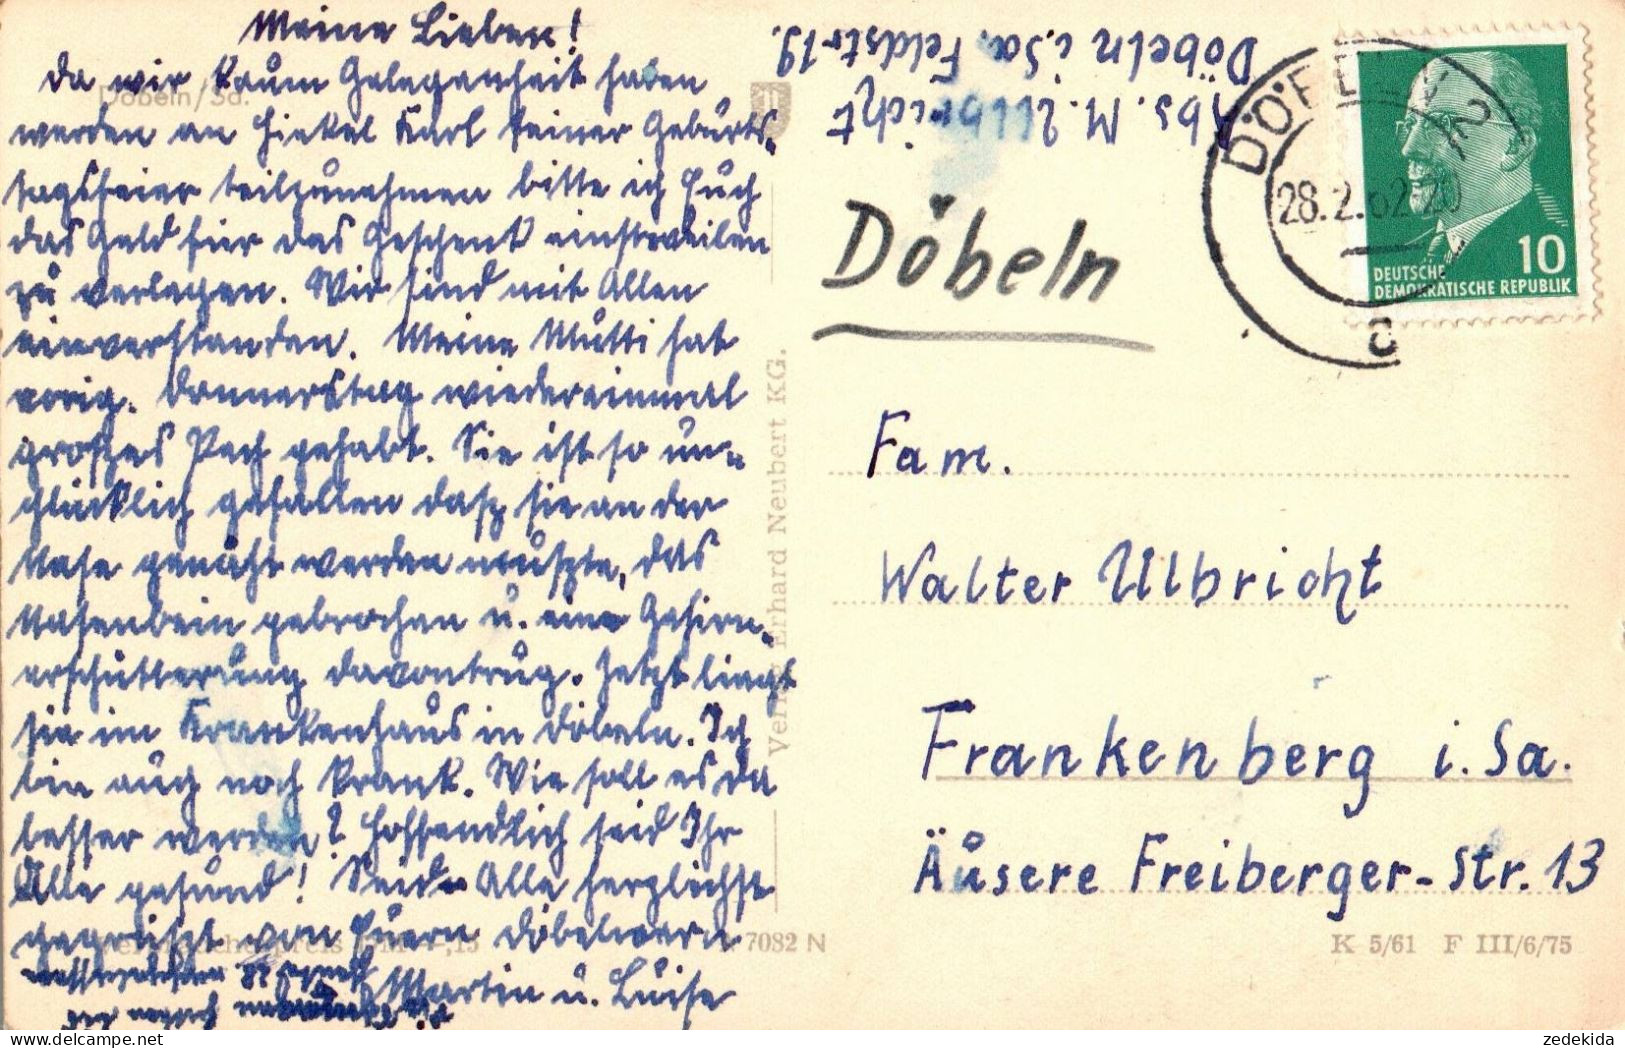 Meine Lieben!
Da wir kaum Gelegenheit haben
werden an Onkel Karl seiner Geburts-
tagsfeier teilzunehmen bitte ich Euch
das Geld für das Geschenk einstweilen
zu verlegen. Wir sind mit Allen
einverstanden. Meine Mutti hat
vorig. Donnerstag wiedereinmal
großes Pech gehabt. Sie ist so un-
glücklich gefallen dasz sie an der
Nase genäht werden muszte, das
Nasenbein gebrochen u. eine Gehirn-
erschütterung davontrug. Jetzt liegt
sie im Krankenhaus in Döbeln. Ich
bin auch noch krank. Wie soll es da
besser werden? Hoffendlich seid Ihr
Alle gesund! Seid Alle herzlichst
gegrüßt von Euern Döbelnern
Martin u. Luise
Döbeln/Sa.
Verlag Erhard Neubert KG.
7082 N
K 5/61 F III/6/75
Abs. M. Ullbricht
Döbeln i. Sa. Feldstr. 19.
Döbeln
DÖBELN 2
28.2.62-20
c
10
DEUTSCHE
DEMOKRATISCHE REPUBLIK
Fam.
Walter Ulbricht
Frankenberg i. Sa.
Äusere Freiberger-Str. 13
zedekida